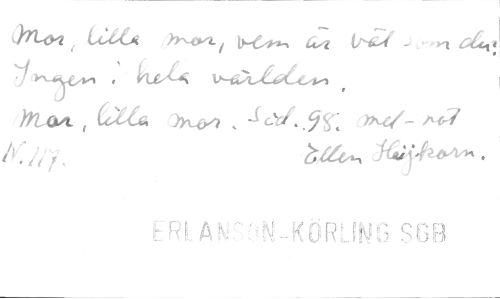 Mor, lilla mor, vem är väl som du?
Ingen i hela världen.
Mor, lilla mor. Sid. 98. med-not
N. 117. Ellen Heijkorn.
ERLANSON-KÖRLING SGB